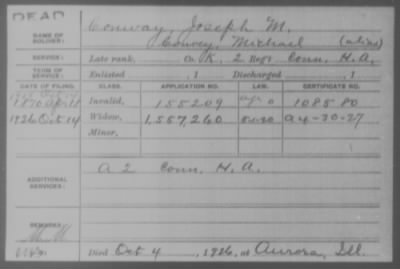 DEAD
Conway, Joseph M.
NAME OF SOLDIER: Convey, Michael (alias)
SERVICE: Late rank, Co. K, 2 Regt. Conn. H.A.
TERM OF SERVICE: Enlisted , 1 Discharged , 1
DATE OF FILING. CLASS. APPLICATION NO. LAW. CERTIFICATE NO.
Invalid, 155209 1085 80
1926 Oct 14 Widow, 1,557,260 A 4-30-27
Minor,
ADDITIONAL SERVICES: A 2 Conn. H.A.
REMARKS:
Died Oct 4, 1926, at Aurora, Ill.